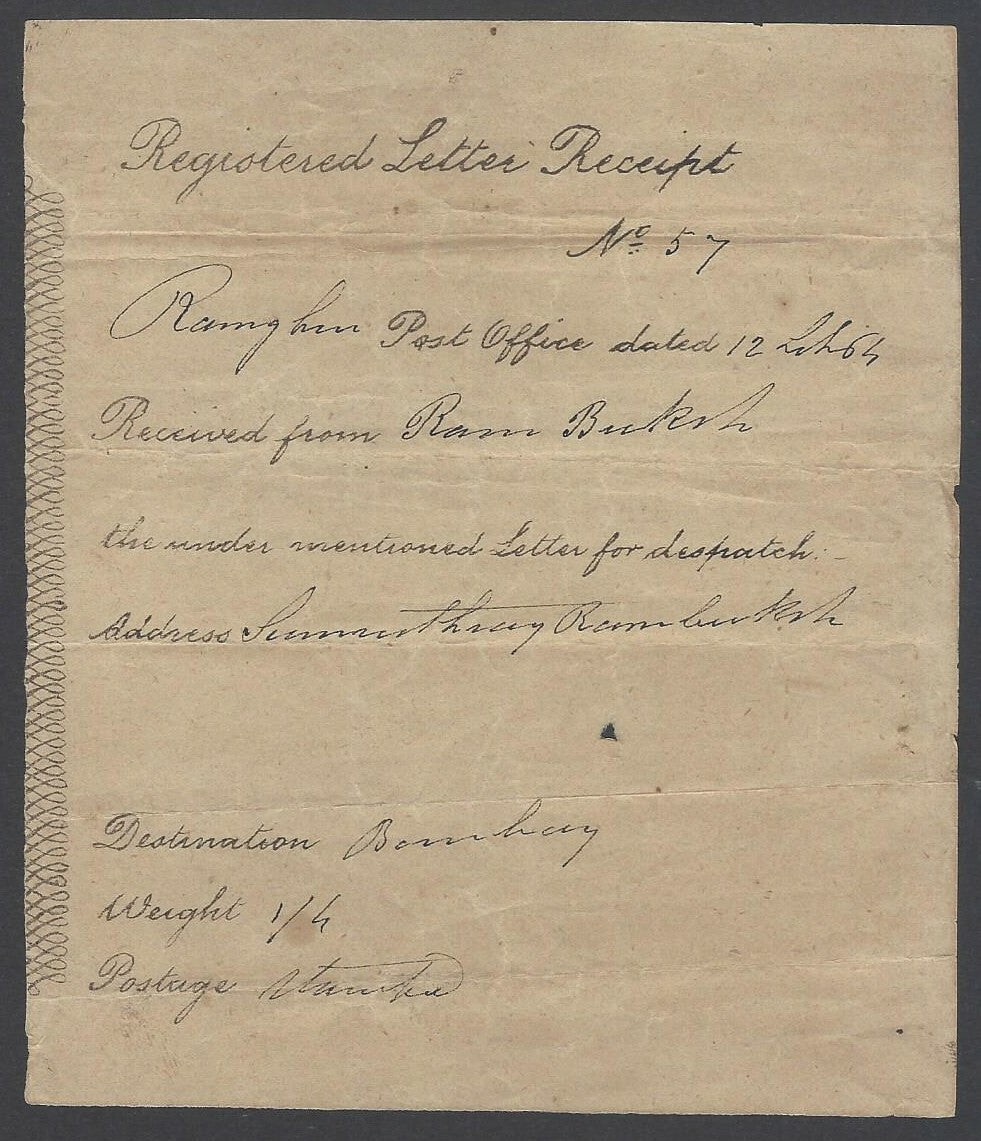 Registered Letter Receipt
No 57
Post Office dated 12
Received from Ram Buksh
the under mentioned Letter for despatch:-
Address Rambuksh
Destination Bombay
Weight 1/4
Postage